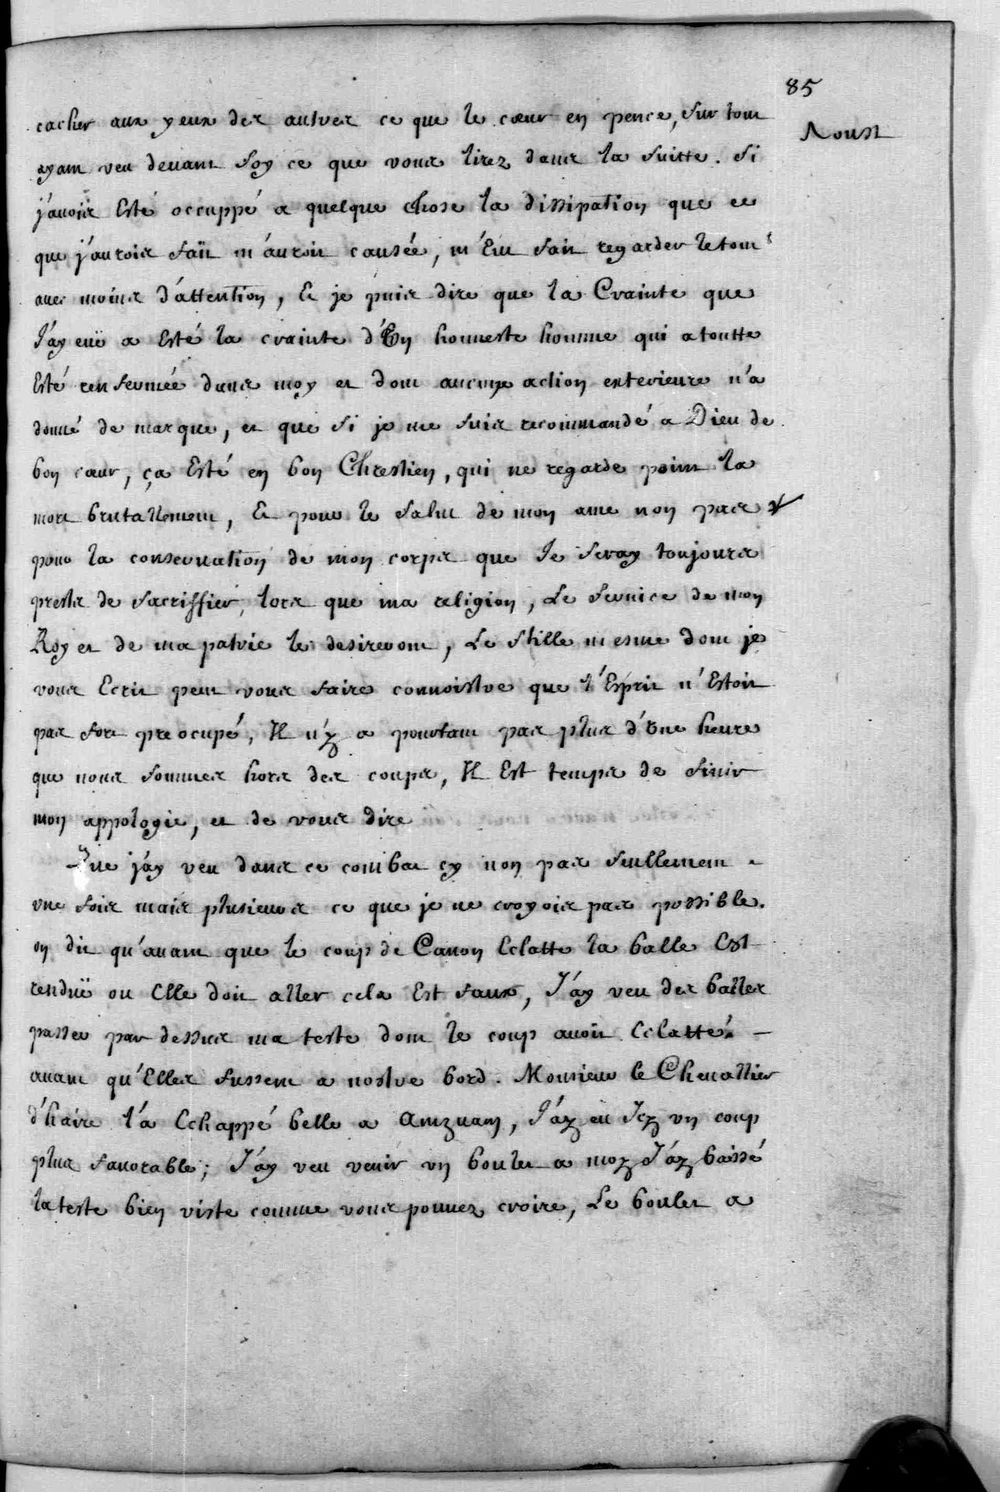 85
Aoust
cacher aux yeux des autres ce que le cœur en pence, sur tout
ayant veu devant soy ce que vous lirez dans la suitte. Si
j'avois Esté occuppé a quelque chose la dissipation que ce
que j'aurois fait m'auroit causée, m'Eut fait regarder le tout
avec moins d'attention, Et je puis dire que la Crainte que
J'ay euë a Esté la crainte d'Un honneste homme qui a toutte
Esté renfermée dans moy et dont aucune action exterieure n'a
donné de marque, et que si je me suis recommandé a Dieu de
bon cœur, ça Esté en bon Chrestien, qui ne regarde point la
mort brutallement, Et pour le salut de mon ame non pas
pour la conservation de mon corps que Je seray toujours
prests de sacriffier, lors que ma religion, Le service de mon
Roy et de ma patrie le desireront, Le stille mesme dont je
vous Ecrit peut vous faire connoistre que l'Esprit n'Estoit
pas fort preocupé, Il n'y a pourtant pas plus d'Une heure
que nous sommes hors des coups, Il Est temps de finir
mon appologie, et de vous dire
Que j'ay veu dans ce combat cy non pas seullement
une fois mais plusieurs ce que je ne croyois pas possible.
on dit qu'avant que le coup de Canon Eclatte la balle Est
renduë ou Elle doit aller cela Est faux, J'ay veu des balles
passer par dessus ma teste dont le coup avoit Eclatté
avant qu'Elles fussent a nostre bord. Monsieur le Chevallier
d'haire l'a Echappé belle a amzuam, J'ay eu Icy un coup
plus favorable; J'ay veu venir un boulet a moy J'ay baissé
la teste bien viste comme vous pouvez croire, Le boulet a